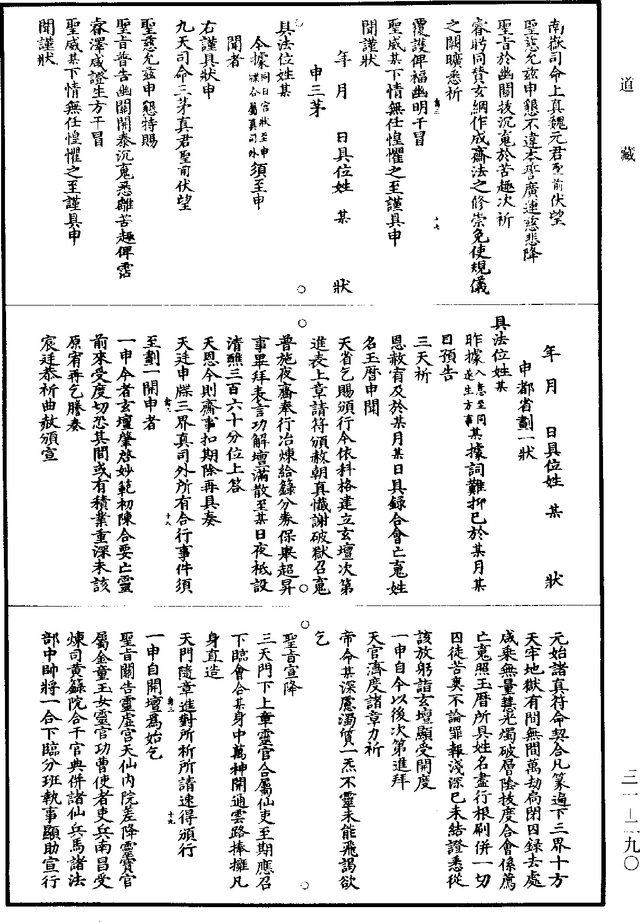 道藏
南嶽司命上真魏元君聖前伏望
聖慈允兹申懇不違本誓廣運慈悲降
聖旨於幽關拔沉魂於苦趣次祈
睿眄同贊玄綱作成齋法之修崇免使規儀
之闕曠悉祈
覆護俾福幽明干冒
聖威某下情無任惶懼之至謹具申
聞謹狀
年月 日具位姓 某 狀
申三茅
具法位姓某
今據同日官狀至申牒合屬真司外須至申
聞者
右謹具狀申
九天司命三茅真君聖前伏望
聖慈允兹申懇特賜
聖旨普告幽關開泰沉魂悉離苦趣俾霑
睿澤咸證生方干冒
聖威某下情無任惶懼之至謹具申
聞謹狀
年月 日具位姓 某 狀
申都省劄一狀
具法位姓某
昨據入意至同逐生方事某據詞難抑已於某月某
日預告
三天祈
恩赦宥及於某月某日具錄合會亡魂姓
名玉曆申聞
天省乞賜頒行今依科格建立玄壇次第
進表上章請符頒赦朝真懺謝破獄召魂
普施夜齋奉行冶煉給錄分券保舉超昇
事畢拜表言功解壇滿散至某日夜祗設
清醮三百六十分位上答
天恩今則齋事扣期除再具奏
天廷申牒三界真司外所有合行事件須
至劄一開申者
一申今者玄壇肇啓妙範初陳合要亡靈
前來受度切恐其間或有積業重深未該
原宥再乞謄奏
宸廷恭祈曲赦頒宣
元始諸真符命契合凡篆遍下三界十方
天牢地獄有間無間萬劫扃閉囚錄去處
咸乘無量慧光燭破層陰拔度合會係薦
亡魂照玉曆所具姓名盡行根刷併一切
囚徒苦爽不論罪報淺深已未結證悉從
該放躬詣玄壇顯受開度
一申自今以後次第進拜
天官濟度諸章力祈
帝命某深慮濁質一炁不靈未能飛謁欲
乞
聖旨宣降
三天門下上章靈官合屬仙吏至期應召
下臨會合某身中萬神開通雲路捧擁凡
身直造
天門隨章進對所祈所請速得頒行
一申自開壇爲始乞
聖旨關告靈虛宮天仙內院差降靈寶官
屬金童玉女靈官功曹使者吏兵南昌受
煉司黄籙院合干官典併諸仙兵馬諸法
部中帥將一合下臨分班執事顯助宣行
三一—二九〇